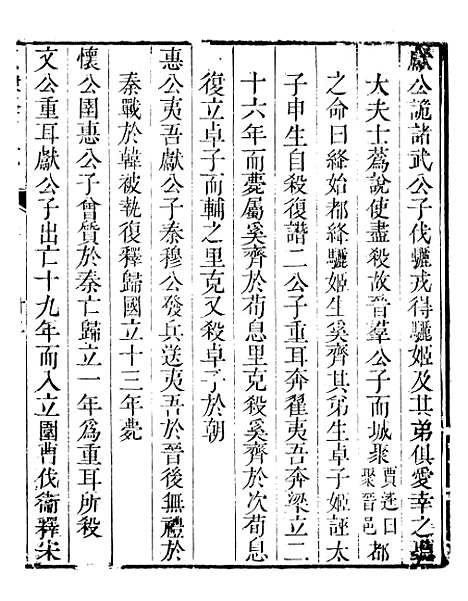 獻公詭諸武公子伐驪戎得驪姬及其弟俱愛幸之
大夫士蔿說使盡殺故晉羣公子而城聚賈逵曰聚晉邑都
之命曰絳始都絳驪姬生奚齊其弟生卓子姬誣太
子申生自殺復譖二公子重耳奔翟夷吾奔梁立二
十六年而薨屬奚齊於荀息里克殺奚齊於次荀息
復立卓子而輔之里克又殺卓子於朝
惠公夷吾獻公子秦穆公發兵送夷吾於晉後無禮於
秦戰於韓被執復釋歸國立十三年薨
懷公圉惠公子曾質於秦亡歸立一年爲重耳所殺
文公重耳獻公子出亡十九年而入立圍曹伐衞釋宋